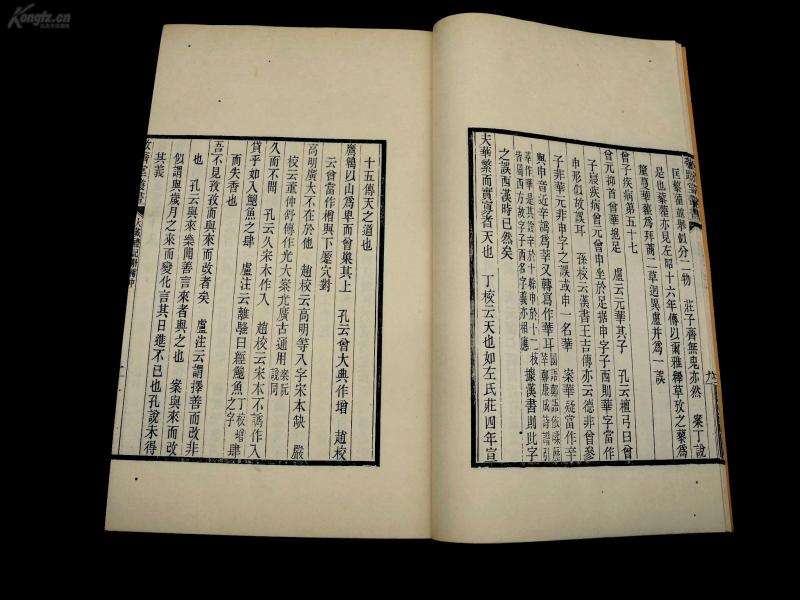 Kongfz.cn
匡藜藿並舉似分二物 莊子齊無鬼亦然 案丁說
是也藜藿亦見左昭十六年傳以爾雅釋草攷之藜爲
釐蔓華藿爲拜蔏二草迥異盧幷爲一誤
曾子疾病第五十七
曾元抑首曾華抱足 盧云元華其子 孔云檀弓曰曾
子寢疾病曾元曾申坐於足據申字子西則華字當作
申形似故誤耳 孫校云漢書王吉傳亦云德非曾參
子非華元非申字之誤或申一名華 案華疑當作辛
與申音近辛譌爲莘又轉寫作華耳
之誤西漢時已然矣
天華繁而實寡者天也 丁校云天也如左氏莊四年宣
十五傳天之道也
鷹鶽以山爲卑而曾巢其上 孔云曾大典作增 趙校
云曾當作橧與下蹷穴對
高明廣大不在於他 趙校云高明等八字宋本缺 嚴
校云董仲舒傳作光大案光廣古通用 朵阮說同
久而不聞 孔云久宋本作入 趙校云宋本不譌作入
貸乎如入鮑魚之肆 盧注云離騷曰經鮑魚 丁校增肆
而失香也 之字
吾不見孜孜而與來而改者矣 盧注云謂擇善而改非
也 孔云與來樂聞善言來者與之也 案與來而改
似謂與歲月之來而變化言其日進不已也孔說未得
其義